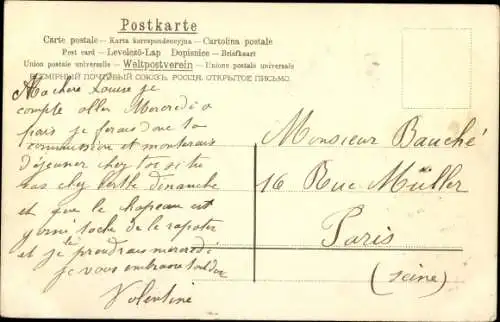 Postkarte
Carte postale — Karta korrespondencyjna — Cartolina postale
Post card — Levelező-Lap Dopisnice — Briefkaart
Union postale universelle — Weltpostverein — Unione postale universale
ВСЕМІРНЫЙ ПОЧТОВЫЙ СОЮЗЪ. РОССІЯ. ОТКРЫТОЕ ПИСЬМО.
Ma chère Louise je
compte aller Mercredi a
je ferais donc ta
commission et monterais
déjeuner chez toi si tu
vas chez berthe dimanche
et que le chapeau est
garni tache de le rapoter
et je le prendrais mercredi
je vous embrasse
Valentine
Monsieur Bauché
16 Rue Müller
Paris
(seine)